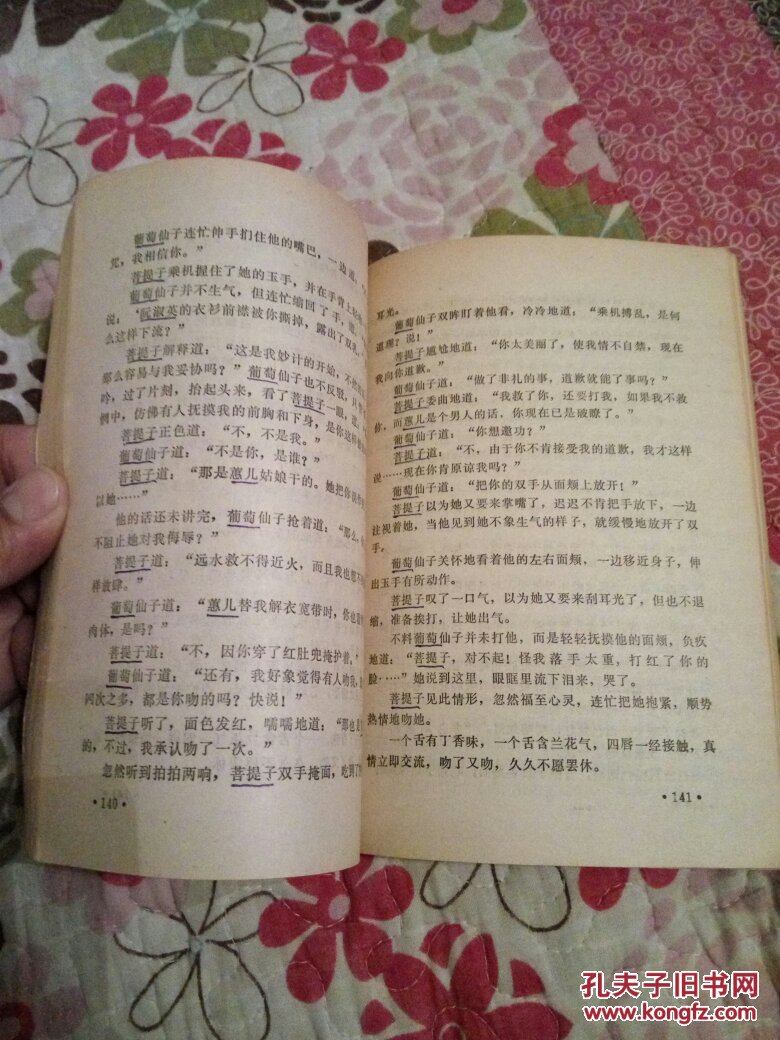 葡萄仙子连忙伸手扪住他的嘴巴，一边道，
咒，我相信你。”
菩提子乘机握住了她的玉手，并在手背上
葡萄仙子并不生气，但连忙缩回了手，道
说：‘阮淑英的衣衫前襟被你撕掉，露出了双乳，
么这样下流？”
菩提子解释道：“这是我妙计的开始，不然
那么容易与我妥协吗？”葡萄仙子也不反驳，只
吟，过了片刻，抬起头来，看了菩提子一眼，道
惘中，仿佛有人抚摸我的前胸和下身，是你这样
菩提子正色道：“不，不是我。”
葡萄仙子道：“不是你，是谁？”
菩提子道：“那是蕙儿姑娘干的。她把你
以她……”
他的话还未讲完，葡萄仙子抢着道：“那么，
不阻止她对我侮辱？”
菩提子道：“远水救不得近火，而且我也想不
样放肆。”
葡萄仙子道：“蕙儿替我解衣宽带时，你也
肉体，是吗？”
菩提子道：“不，因你穿了红肚兜掩护着。”
葡萄仙子道：“还有，我好象觉得有人吻我，
四次之多，都是你吻的吗？快说！”
菩提子听了，面色发红，嚅嚅地道：“那也是
的，不过，我承认吻了一次。”
忽然听到拍拍两响，菩提子双手掩面，吃到了
·140·
耳光。
葡萄仙子双眸盯着他看，冷冷地道：“乘机搏乱，是何
道理？说！”
菩提子尴尬地道：“你太美丽了，使我情不自禁，现在
我向你道歉。”
葡萄仙子道：“做了非礼的事，道歉就能了事吗？”
菩提子委曲地道：“我救了你，还要打我，如果我不救
你，而蕙儿是个男人的话，你现在已是破瞭了。”
葡萄仙子道：“你想邀功？”
菩提子道：“不，由于你不肯接受我的道歉，我才这样
说……现在你肯原谅我吗？”
葡萄仙子道：“把你的双手从面颊上放开！”
菩提子以为她又要来掌嘴了，迟迟不肯把手放下，一边
注视着她，当他见到她不象生气的样子，就缓慢地放开了双
手。
葡萄仙子关怀地看着他的左右面颊，一边移近身子，伸
出玉手有所动作。
菩提子叹了一口气，以为她又要来刮耳光了，但也不退
缩，准备挨打，让她出气。
不料葡萄仙子并未打他，而是轻轻抚摸他的面颊，负疚
地道：“菩提子，对不起！怪我落手太重，打红了你的
脸……”她说到这里，眼眶里流下泪来，哭了。
菩提子见此情形，忽然福至心灵，连忙把她抱紧，顺势
热情地吻她。
一个舌有丁香味，一个舌含兰花气，四唇一经接触，真
情立即交流，吻了又吻，久久不愿罢休。
·141·
孔夫子旧书网
www.kongfz.com